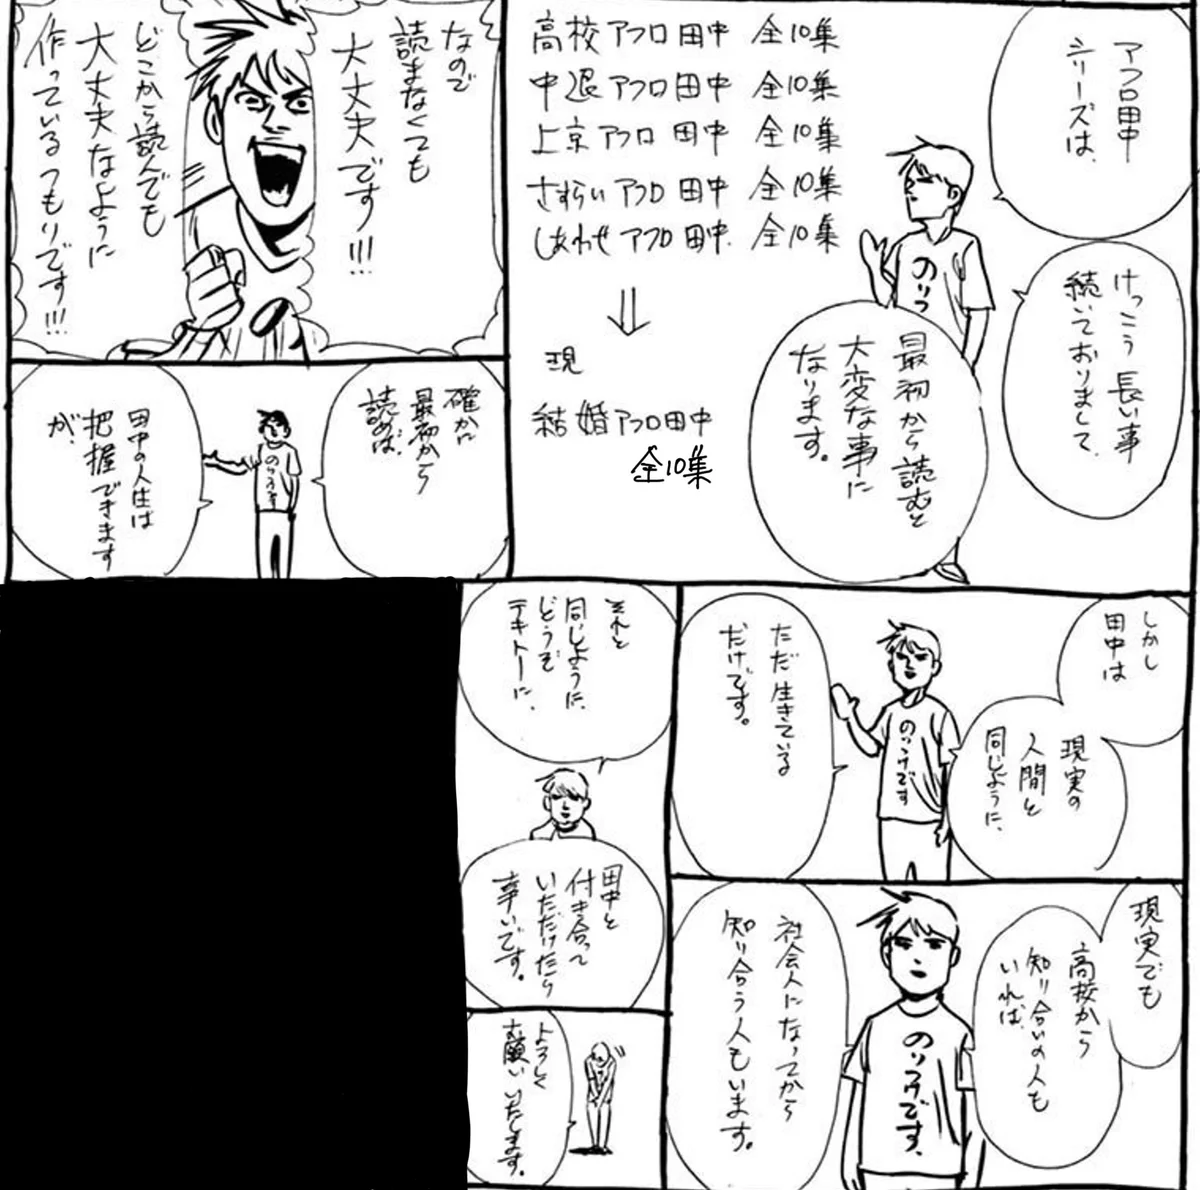 アフロ田中
シリーズは、
けっこう長い事
続いておりまして、
高校アフロ田中 全10集
中退アフロ田中 全10集
上京アフロ田中 全10集
さすらいアフロ田中 全10集
しあわせアフロ田中 全10集
現
結婚アフロ田中
全10集
のりつ
最初から読むと
大変な事に
なります。
なので
読まなくても
大丈夫です!!!
どこから読んでも
大丈夫なように
作っているつもりです!!!
確かに
最初から
読めば、
田中の人生は
把握できます
が、
のりつけ
しかし
田中は
現実の
人間と
同じように、
ただ生きている
だけです。
のりつけです
現実でも
高校から
知り合いの人も
いれば、
社会人になってから
知り合う人もいます。
のりつけです、
それと
同じように、
どうぞ
テキトーに、
田中と
付き合って
いただけたら
幸いです。
よろしく
お願いいたします。